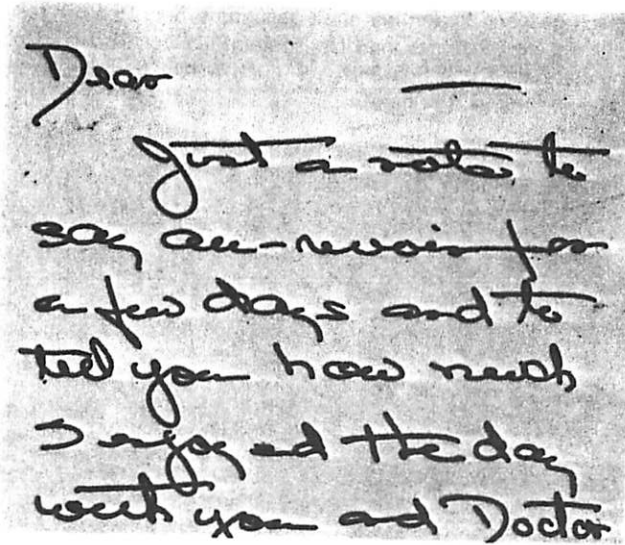 Dear
Just a note to
say au-revoir for
a few days and to
tell you how much
I enjoyed the day
with you and Doctor